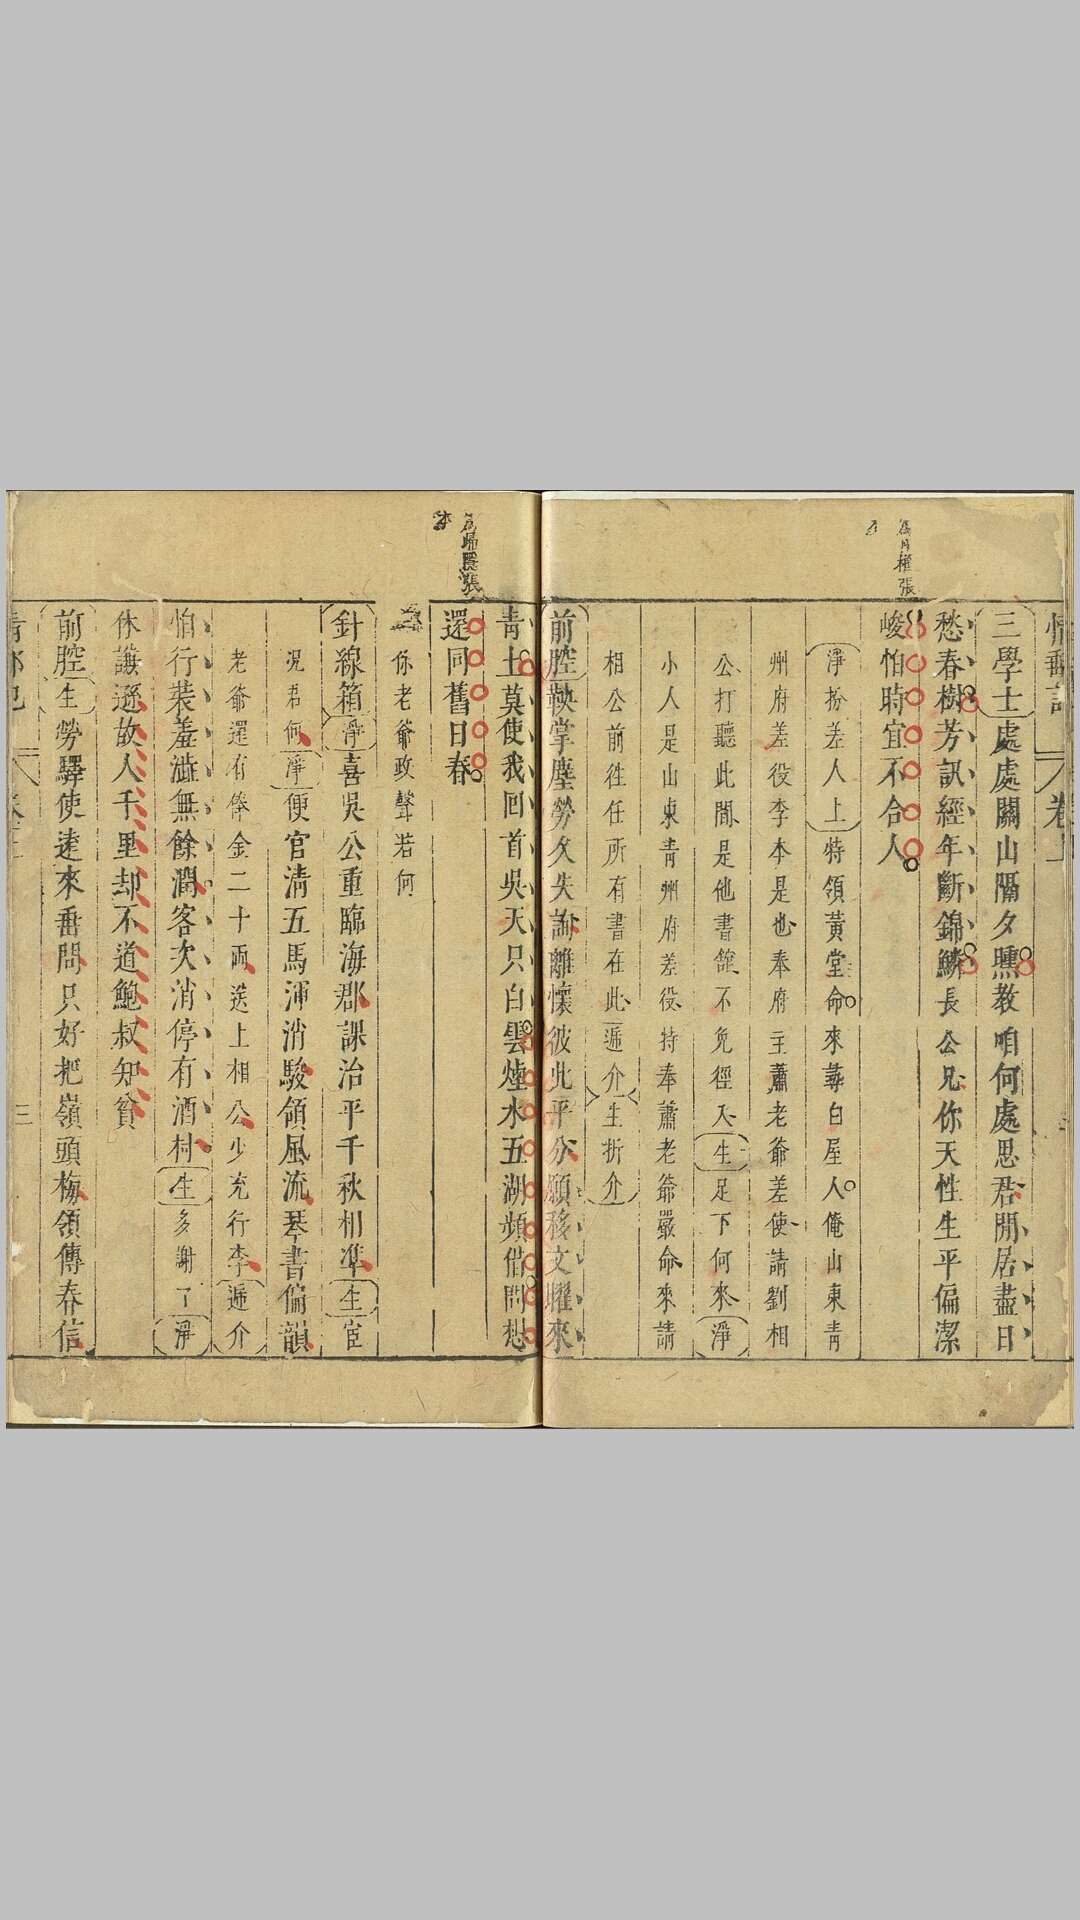 情郵記
卷上
三學士處處關山隔夕曛教咱何處思君閒居盡日
愁春樹芳訊經年斷錦鱗長公兄你天性生平偏潔
峻怕時宜不合人
淨扮差人上特領黃堂命來尋白屋人俺山東青
州府差役李本是也奉府主蕭老爺差使請劉相
公打聽此間是他書館不免徑入生足下何來淨
小人是山東青州府差役持奉蕭老爺嚴命來請
相公前徃任所有書在此遞介生折介
前腔鞅掌塵勞久失論離懷彼此平分願移文曜來
青土莫使我回首吳天只白雲煙水五湖頻借問想
還同舊日春
你老爺政聲若何
針線箱淨喜吳公重臨海郡課治平千秋相準生宦
况若何淨便官清五馬渾消駿領風流琴書偏韻
老爺還有俸金二十兩送上相公少充行李遞介
怕行裝羞澁無餘潤客次消停有酒村生多謝了淨
休謙遜故人千里却不道鮑叔知貧
前腔生勞驛使遠來垂問只好把嶺頭梅領傳春信
三